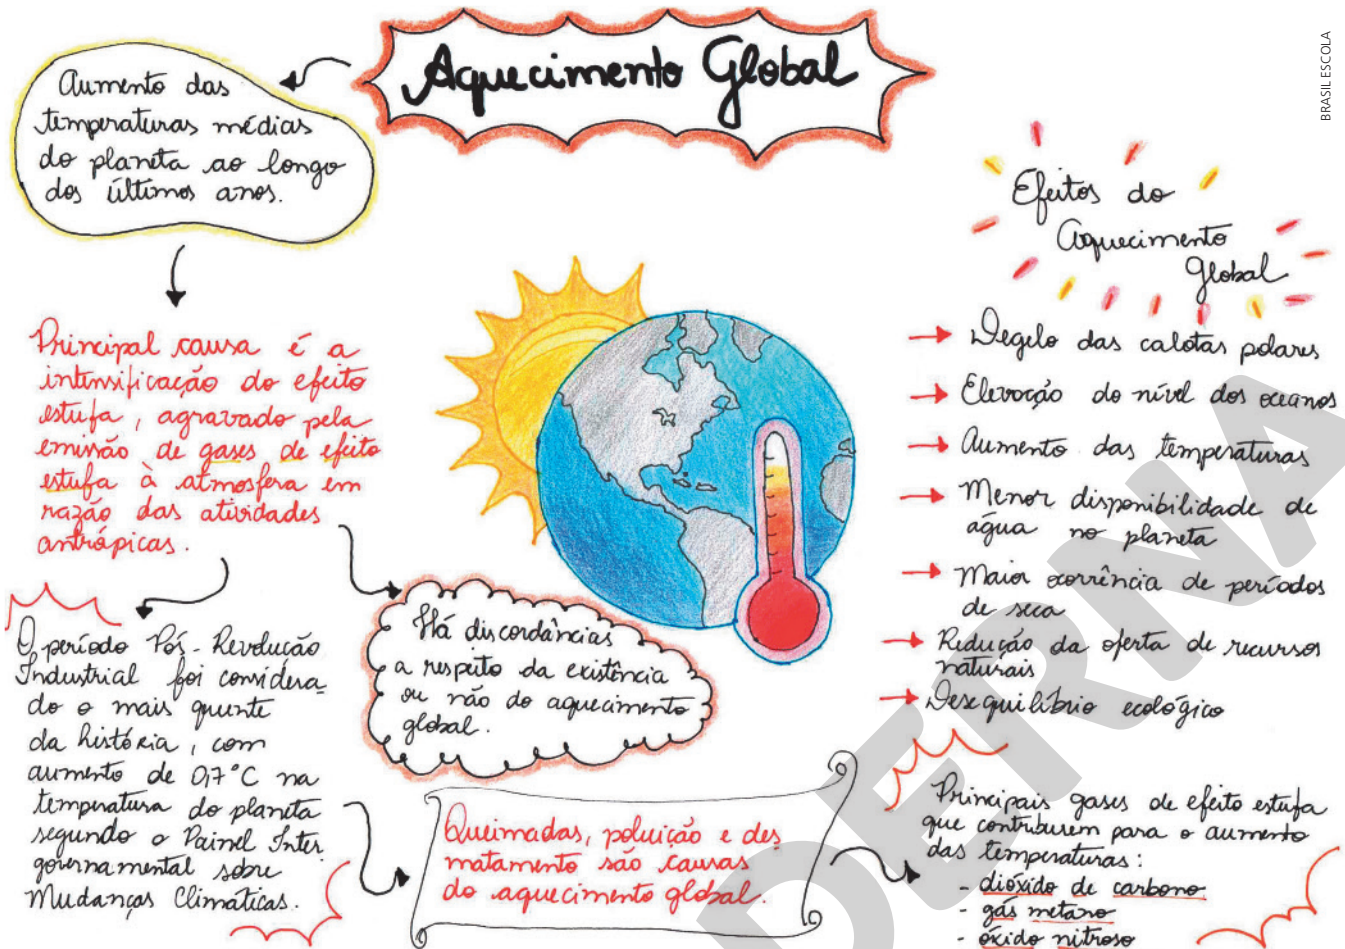 Aquecimento Global
BRASIL ESCOLA
Aumento das
temperaturas médias
do planeta ao longo
dos últimos anos.
Principal causa é a
intensificação do efeito
estufa, agravado pela
emissão de gases de efeito
estufa à atmosfera em
razão das atividades
antrópicas.
O período Pós-Revolução
Industrial foi considera
do o mais quente
da história, com
aumento de 0,7°C na
temperatura do planeta
segundo o Painel Inter
governamental sobre
Mudanças Climáticas.
Há discordâncias
a respeito da existência
ou não do aquecimento
global.
Queimadas, poluição e des
matamento são causas
do aquecimento global.
Efeitos do
Aquecimento
Global
Degelo das calotas polares
Elevação do nível dos oceanos
Aumento das temperaturas
Menor disponibilidade de
água no planeta
Maior ocorrência de períodos
de seca
Redução da oferta de recursos
naturais
Desequilíbrio ecológico
Principais gases de efeito estufa
que contribuem para o aumento
das temperaturas:
- dióxido de carbono
- gás metano
- óxido nitroso
DERNA